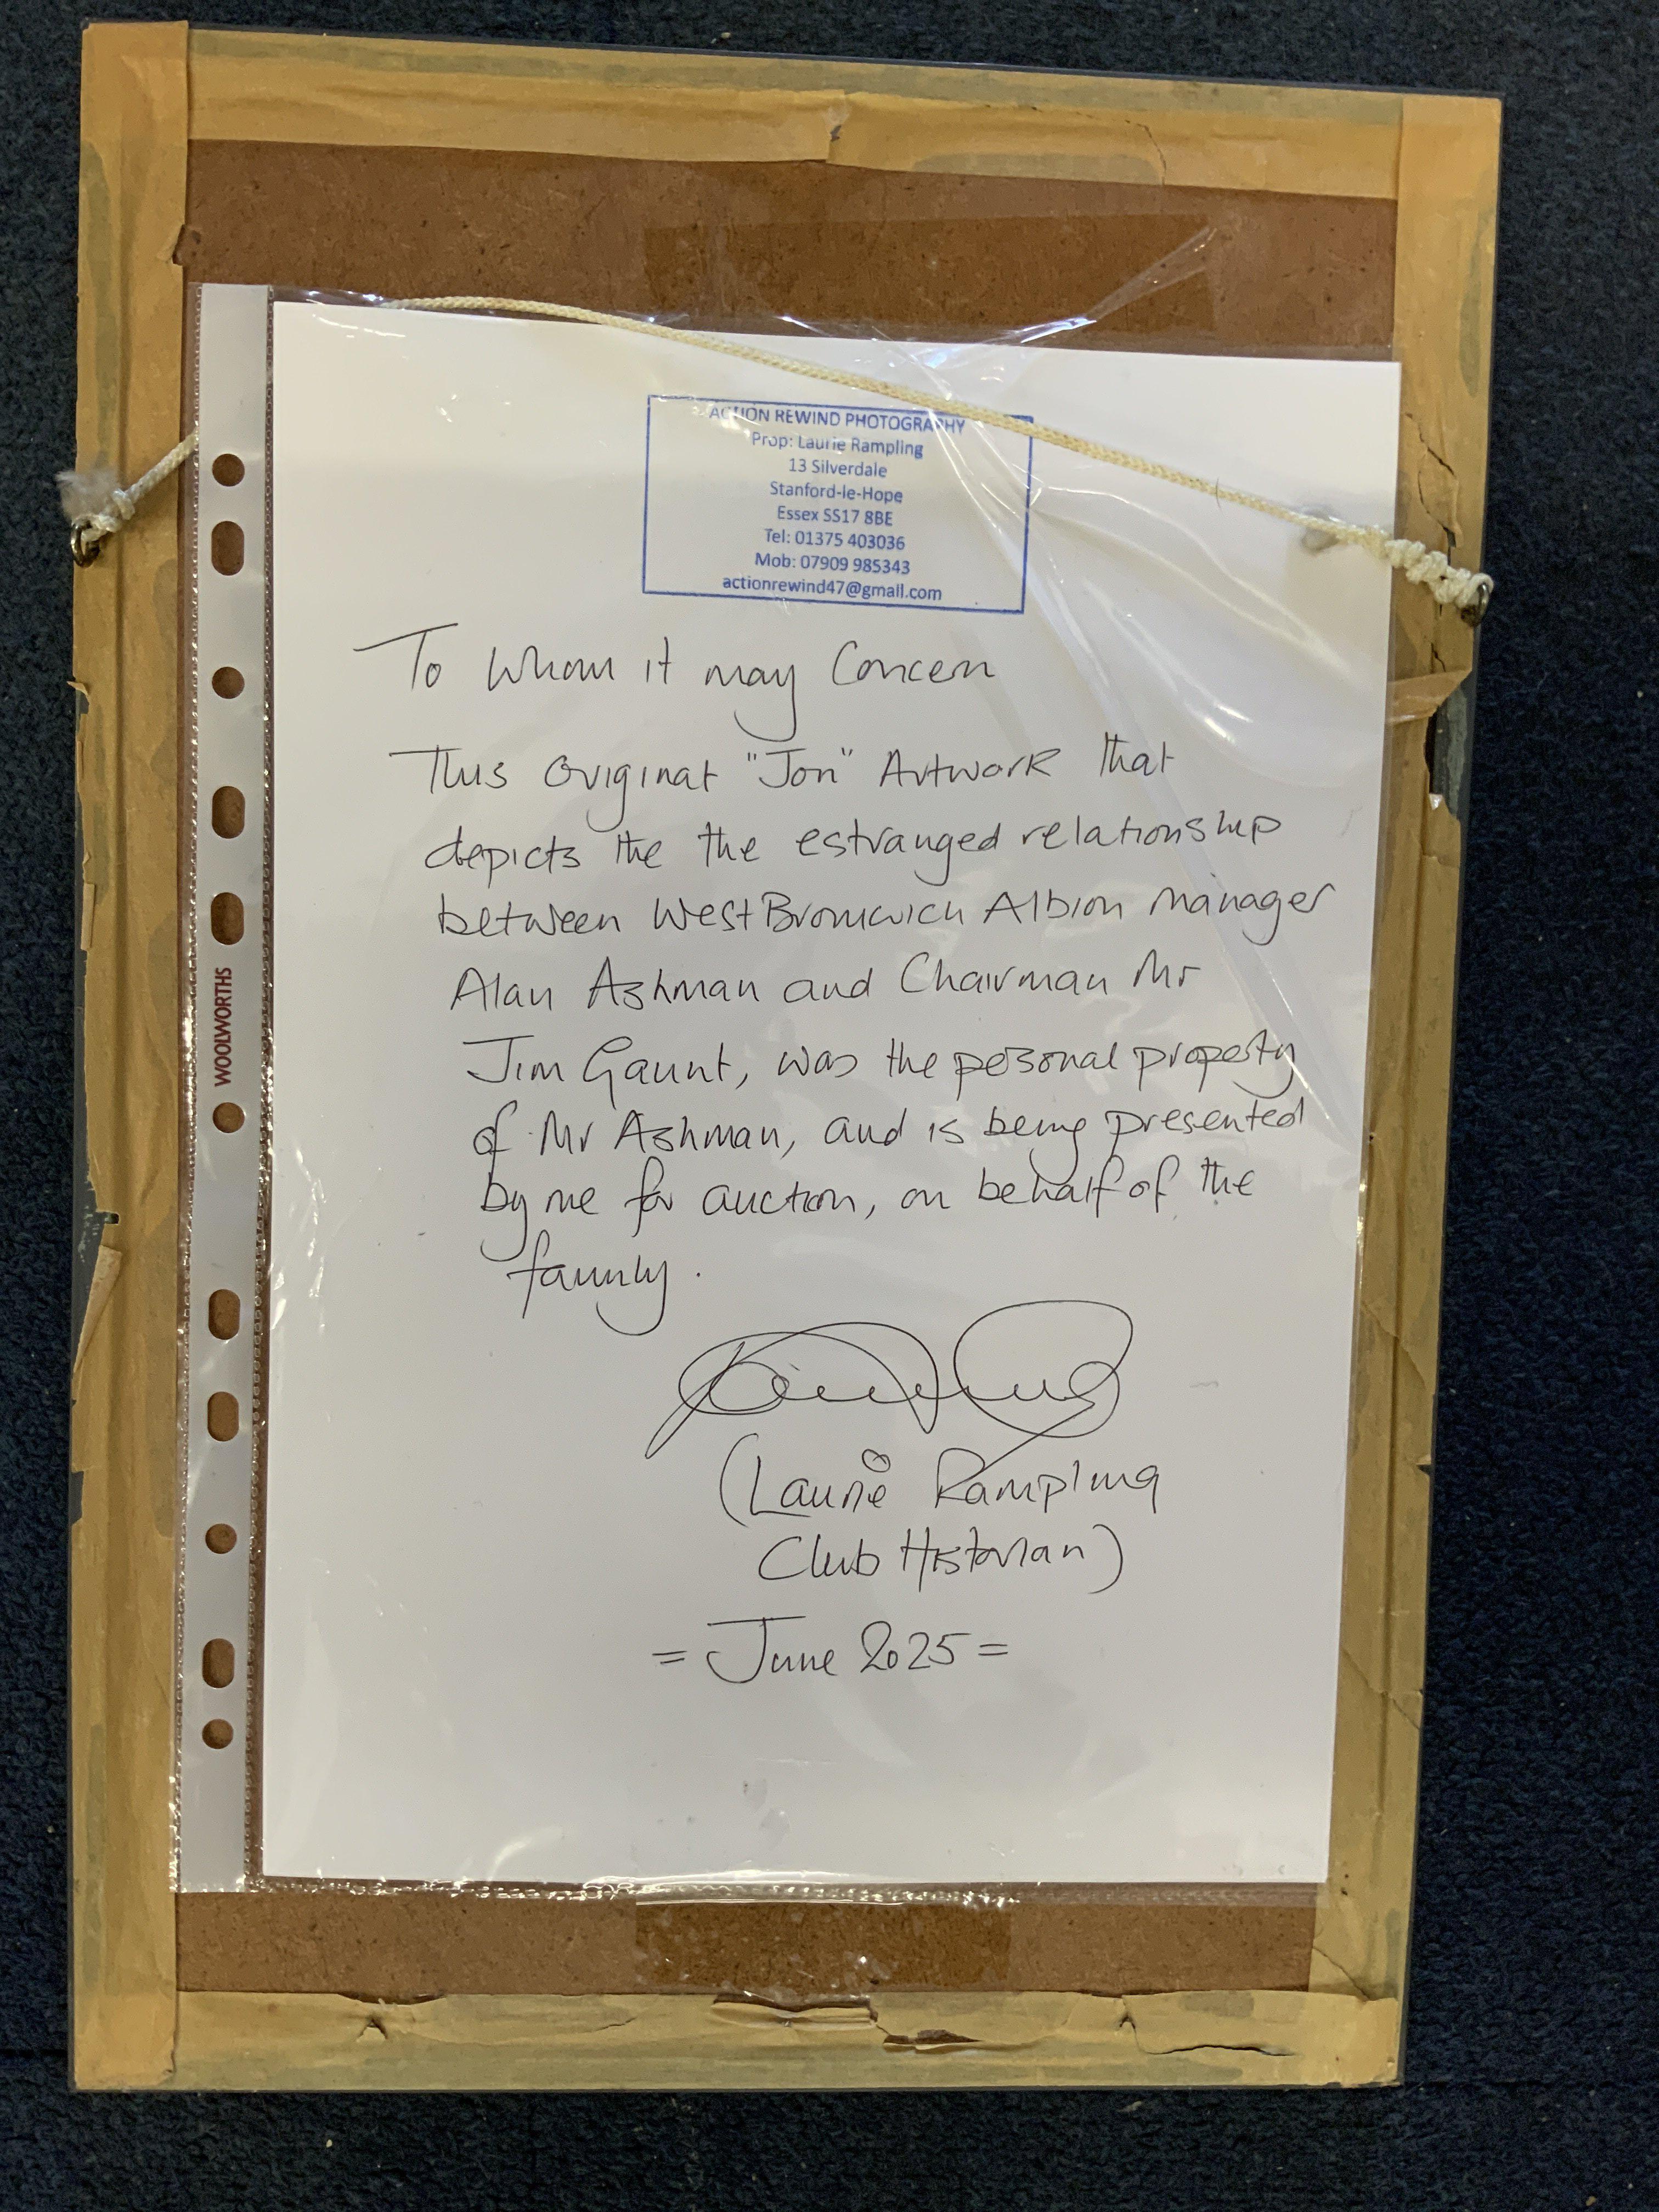 ACTION REWIND PHOTOGRAPHY
Prop: Laurie Rampling
13 Silverdale
Stanford-le-Hope
Essex SS17 8BE
Tel: 01375 403036
Mob: 07909 985343
actionrewind47@gmail.com
To Whom it may Concern
This Original "Jon" Artwork that
depicts the the estranged relationship
between West Bromwich Albion manager
Alan Ashman and Chairman Mr
Jim Gaunt, was the personal property
of Mr Ashman, and is being presented
by me for auction, on behalf of the
family.
(Laurie Rampling
Club Historian)
= June 2025 =
WOOLWORTHS